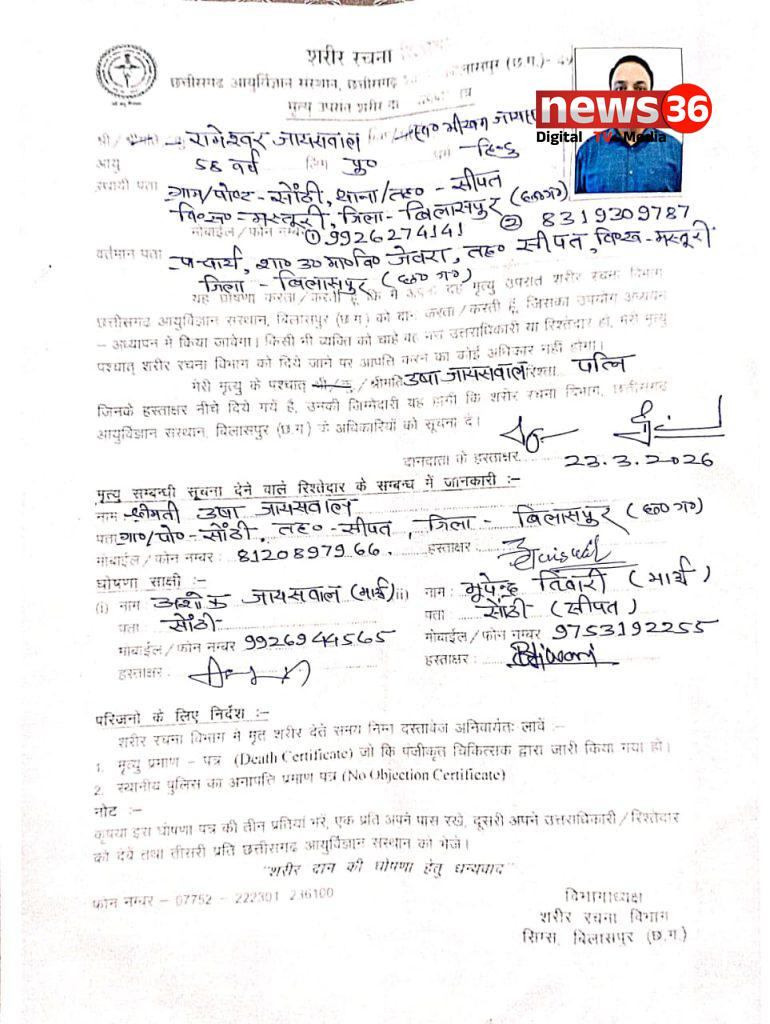 शरीर रचना
छत्तीसगढ़ आयुर्विज्ञान संस्थान, छत्तीसगढ़ बिलासपुर (छ.ग.)-
मृत्यु उपरांत शरीर दान पत्र
news36
Digital TV Media
श्री/श्रीमती रामेश्वर जायसवाल
आयु 58 वर्ष लिंग पु० धर्म हिन्दु
स्थायी पता ग्राम/पोष्ट - सोंठी, थाना/तह० - सीपत
वि०ख० - मस्तूरी, जिला - बिलासपुर (छ०ग०)
मोबाईल/फोन नम्बर ① 9926274141 ② 8319309787
वर्तमान पता प्राचार्य, शा० उ० मा० वि० जेवरा, तह० सीपत, वि०ख - मस्तूरी
जिला - बिलासपुर (छ० ग०)
यह घोषणा करता/करती हूँ कि मैं अपनी देह मृत्यु उपरांत शरीर रचना विभाग
छत्तीसगढ़ आयुर्विज्ञान संस्थान, बिलासपुर (छ.ग.) को दान करता/करती हूँ, जिसका उपयोग अध्ययन
- अध्यापन में किया जावेगा। किसी भी व्यक्ति को चाहे वह मेरा उत्तराधिकारी या रिश्तेदार हो, मेरी मृत्यु
पश्चात् शरीर रचना विभाग को दिये जाने पर आपति करने का कोई अधिकार नहीं होगा।
मेरी मृत्यु के पश्चात् श्री/कु/श्रीमति उषा जायसवाल रिश्ता पत्नि
जिनके हस्ताक्षर नीचे दिये गयें है, उनकी जिम्मेदारी यह होगी कि शरीर रचना विभाग, छत्तीसगढ़
आयुर्विज्ञान संस्थान, बिलासपुर (छ.ग.) के अधिकारियों को सूचना दें।
दानदाता के हस्ताक्षर
23.3.2026
मृत्यु सम्बन्धी सूचना देने वाले रिश्तेदार के सम्बन्ध में जानकारी :-
नाम श्रीमती उषा जायसवाल
पता ग्रा०/पो० - सोंठी, तह० - सीपत, जिला - बिलासपुर (छ० ग०)
मोबाईल/फोन नम्बर : 8120897966. हस्ताक्षर :
घोषणा साक्षी :-
(i) नाम अशोक जायसवाल (मार्च) ii) नाम : भूपेन्द्र तिवारी (मार्च)
पता सोंठी पता सोंठी (सीपत)
मोबाईल/फोन नम्बर 9926944565 मोबाईल/फोन नम्बर 9753192255
हस्ताक्षर : हस्ताक्षर :
परिजनो के लिए निर्देश :-
शरीर रचना विभाग में मृत शरीर देते समय निम्न दस्तावेज अनिवार्यतः लावें :-
1. मृत्यु प्रमाण - पत्र (Death Certificate) जो कि पंजीकृत चिकित्सक द्वारा जारी किया गया हो।
2. स्थानीय पुलिस का अनापत्ति प्रमाण पत्र (No Objection Certificate)
नोट :-
कृपया इस घोषणा पत्र की तीन प्रतियां भरें, एक प्रति अपने पास रखें, दूसरी अपने उत्तराधिकारी/रिश्तेदार
को देवें तथा तीसरी प्रति छत्तीसगढ़ आयुर्विज्ञान संस्थान को भेजे।
"शरीर दान की घोषणा हेतु धन्यवाद"
फोन नम्बर - 07752 - 222301 236100
विभागाध्यक्ष
शरीर रचना विभाग
सिम्स, बिलासपुर (छ.ग.)